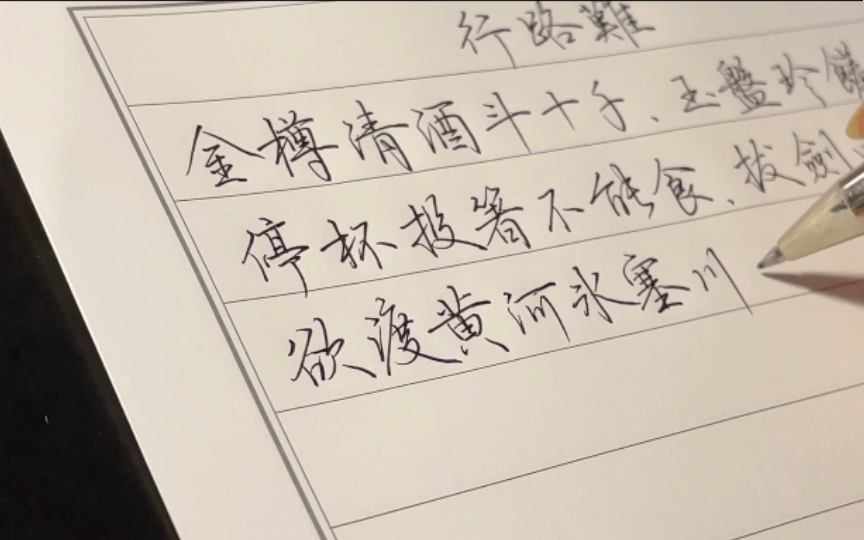 行路難
金樽清酒斗十千、玉盤珍饈
停杯投箸不能食、拔劍
欲渡黄河冰塞川